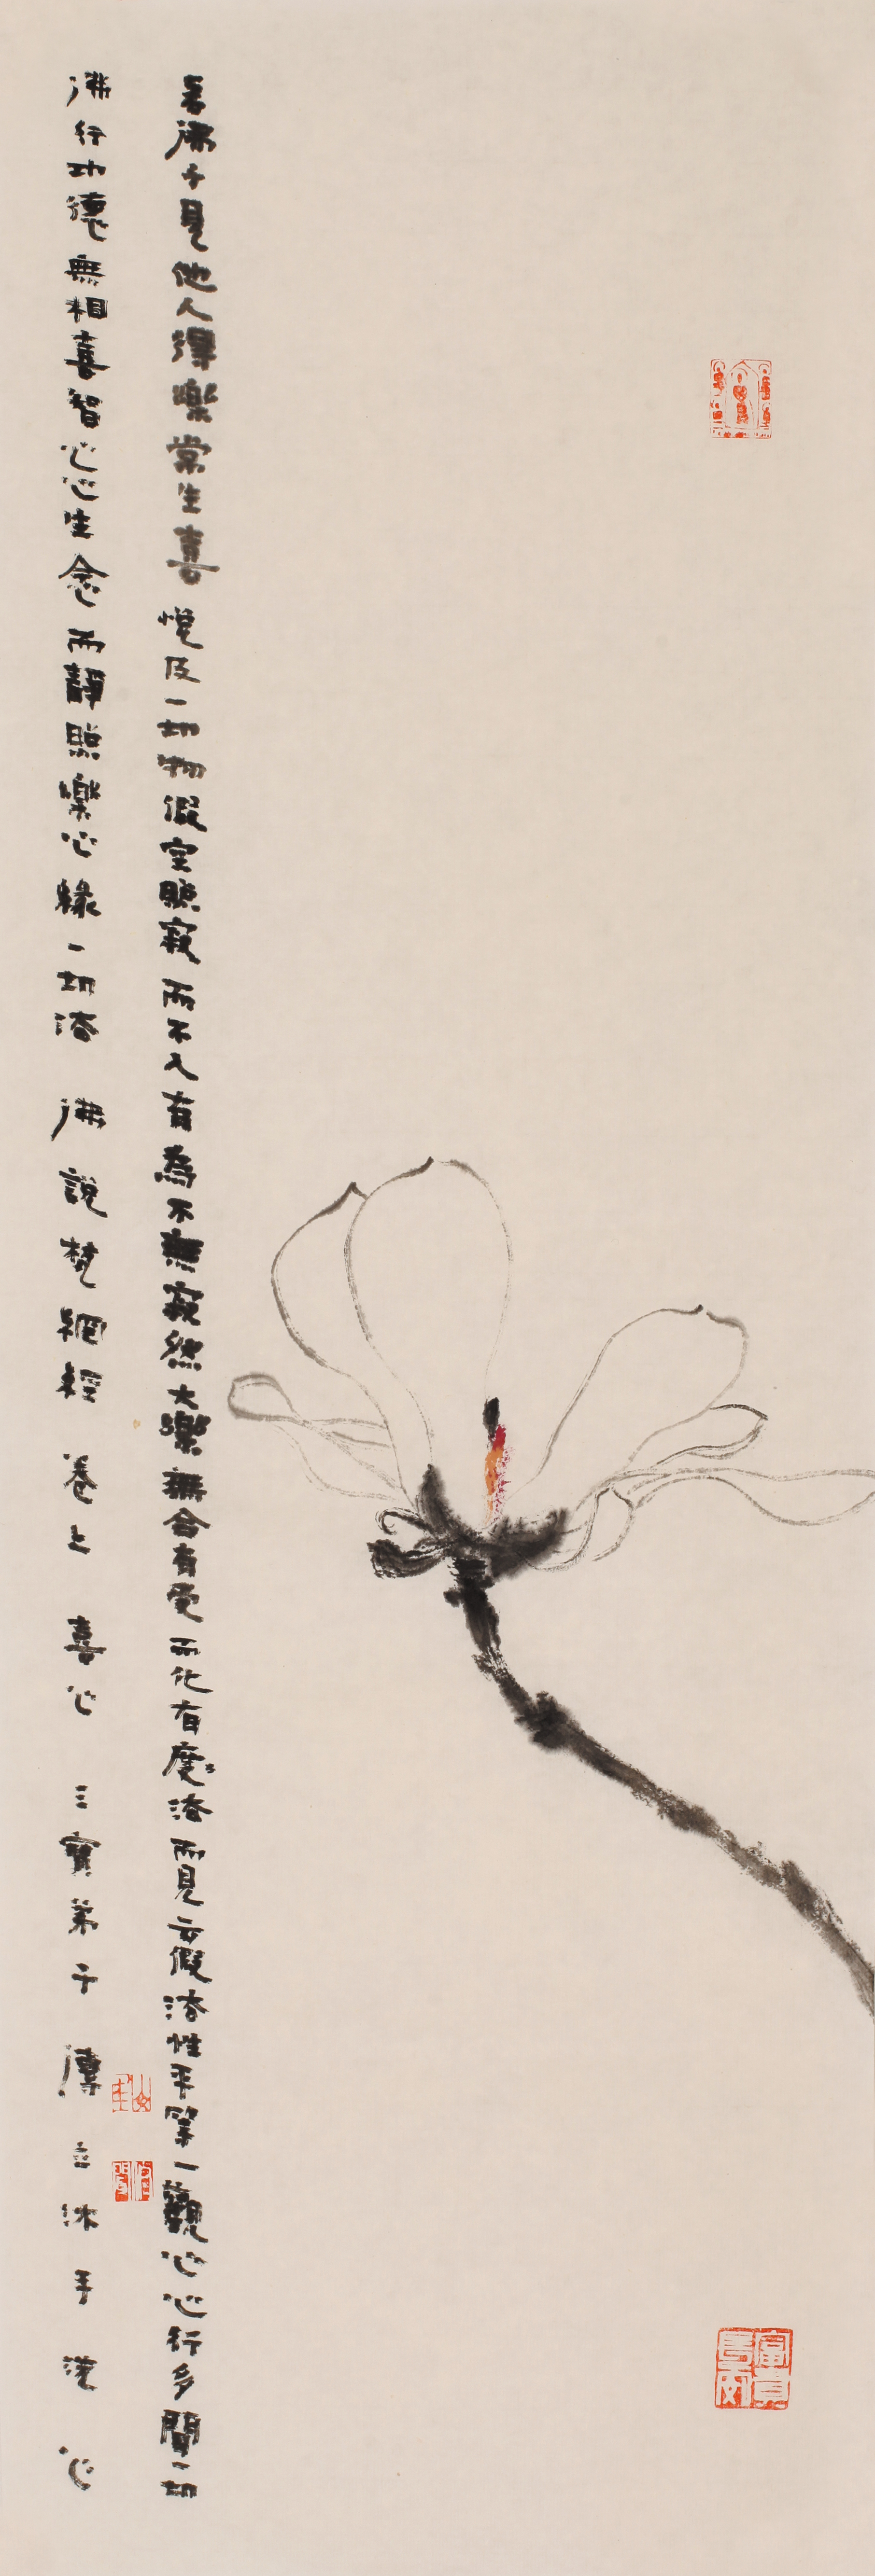 若佛子見他人得樂常生喜悅及一切物假空照寂而不入有為不無寂然大樂無合有受而化有度法而見云假法性平等一觀心心行多聞一切
佛行功德無相喜智心心生念而靜照樂心緣一切法 佛說梵網經 卷上 喜心 三寶弟子 沐手 心